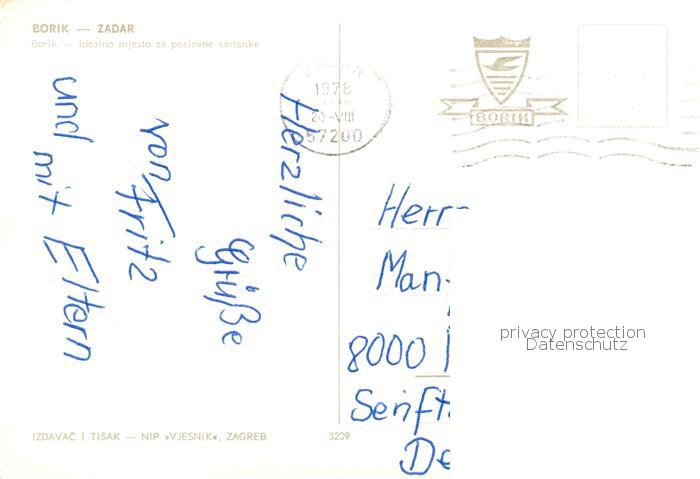 BORIK — ZADAR
Borik — idealno mjesto za poslovne sastanke
1978
20-VIII
57200
BORIK
Herzliche
Grüße
von Fritz
und mit Eltern
Herr
Man
8000
Senft
De
privacy protection
Datenschutz
IZDAVAČ I TISAK — NIP »VJESNIK«, ZAGREB 3239